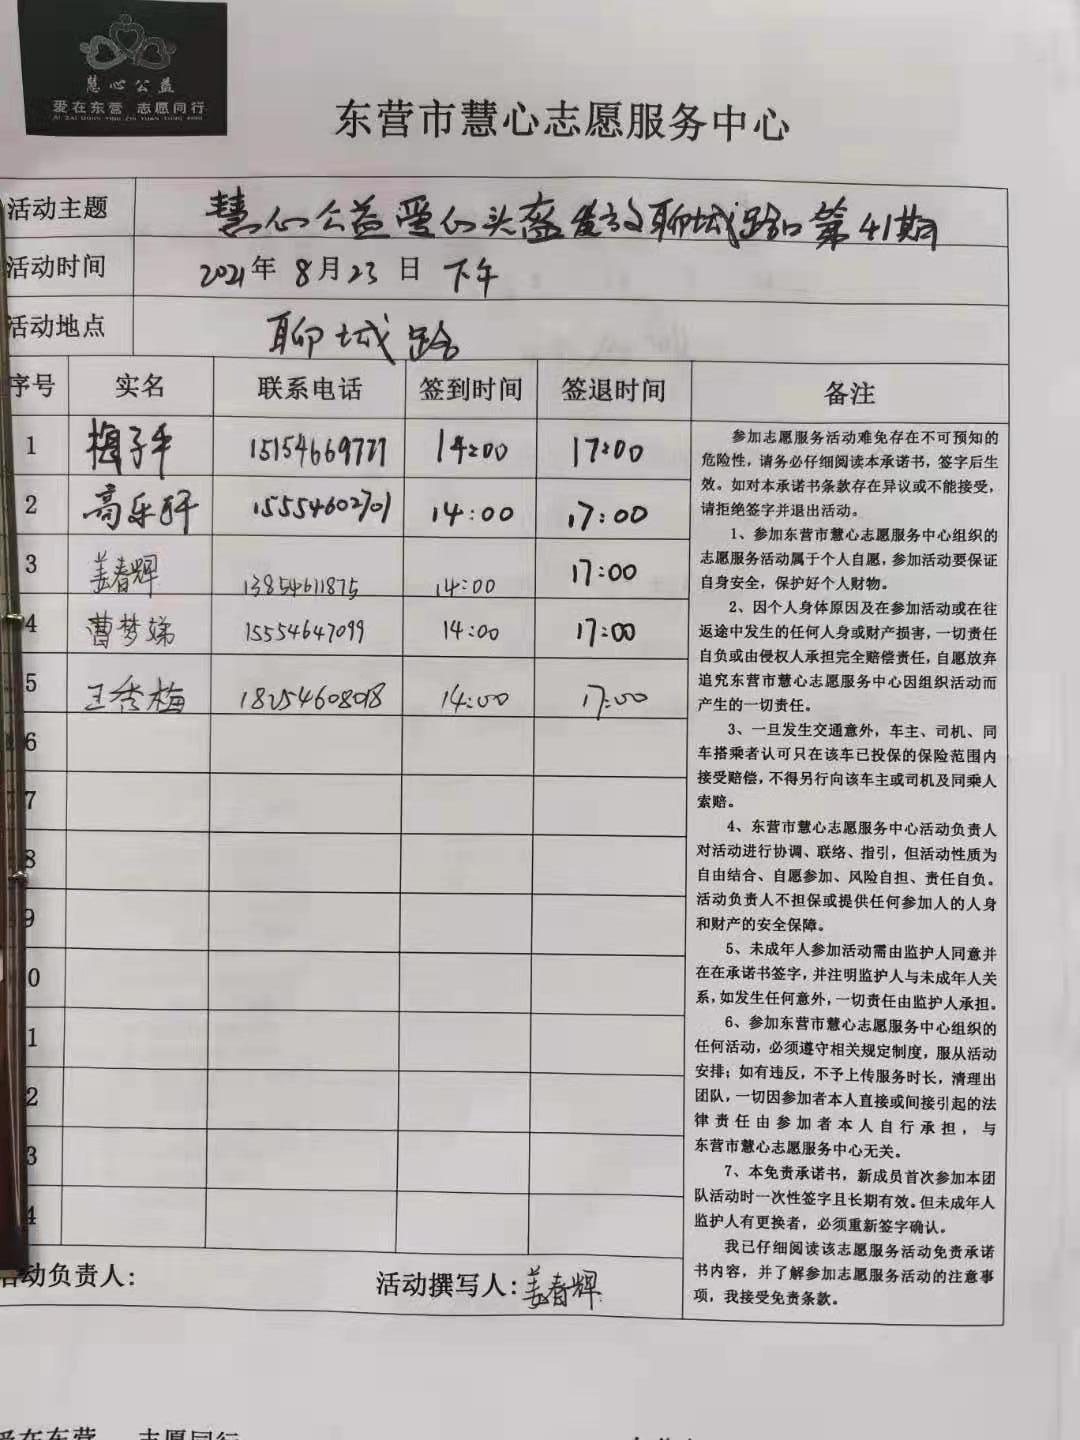 慧心公益
爱在东营 志愿同行
AI ZAI DONG YING ZHI YUAN TONG XING
东营市慧心志愿服务中心
活动主题 慧心公益爱心头盔发放聊城路口第41期
活动时间 2021年8月23日 下午
活动地点 聊城路
序号 实名 联系电话 签到时间 签退时间 备注
1 梅子平 15154669777 14:00 17:00
2 高乐轩 15554602701 14:00 17:00
3 姜春辉 13854611875 14:00 17:00
4 曹梦娣 15554647099 14:00 17:00
5 王秀梅 18254608018 14:00 17:00
6
7
8
9
0
1
2
3
4
参加志愿服务活动难免存在不可预知的
危险性，请务必仔细阅读本承诺书，签字后生
效。如对本承诺书条款存在异议或不能接受，
请拒绝签字并退出活动。
1、参加东营市慧心志愿服务中心组织的
志愿服务活动属于个人自愿，参加活动要保证
自身安全，保护好个人财物。
2、因个人身体原因及在参加活动或在往
返途中发生的任何人身或财产损害，一切责任
自负或由侵权人承担完全赔偿责任，自愿放弃
追究东营市慧心志愿服务中心因组织活动而
产生的一切责任。
3、一旦发生交通意外，车主、司机、同
车搭乘者认可只在该车已投保的保险范围内
接受赔偿，不得另行向该车主或司机及同乘人
索赔。
4、东营市慧心志愿服务中心活动负责人
对活动进行协调、联络、指引，但活动性质为
自由结合、自愿参加、风险自担、责任自负。
活动负责人不担保或提供任何参加人的人身
和财产的安全保障。
5、未成年人参加活动需由监护人同意并
在在承诺书签字，并注明监护人与未成年人关
系，如发生任何意外，一切责任由监护人承担。
6、参加东营市慧心志愿服务中心组织的
任何活动，必须遵守相关规定制度，服从活动
安排；如有违反，不予上传服务时长，清理出
团队，一切因参加者本人直接或间接引起的法
律责任由参加者本人自行承担，与
东营市慧心志愿服务中心无关。
7、本免责承诺书，新成员首次参加本团
队活动时一次性签字且长期有效。但未成年人
监护人有更换者，必须重新签字确认。
我已仔细阅读该志愿服务活动免责承诺
书内容，并了解参加志愿服务活动的注意事
项，我接受免责条款。
活动负责人： 活动撰写人：姜春辉
爱在东营 志愿同行